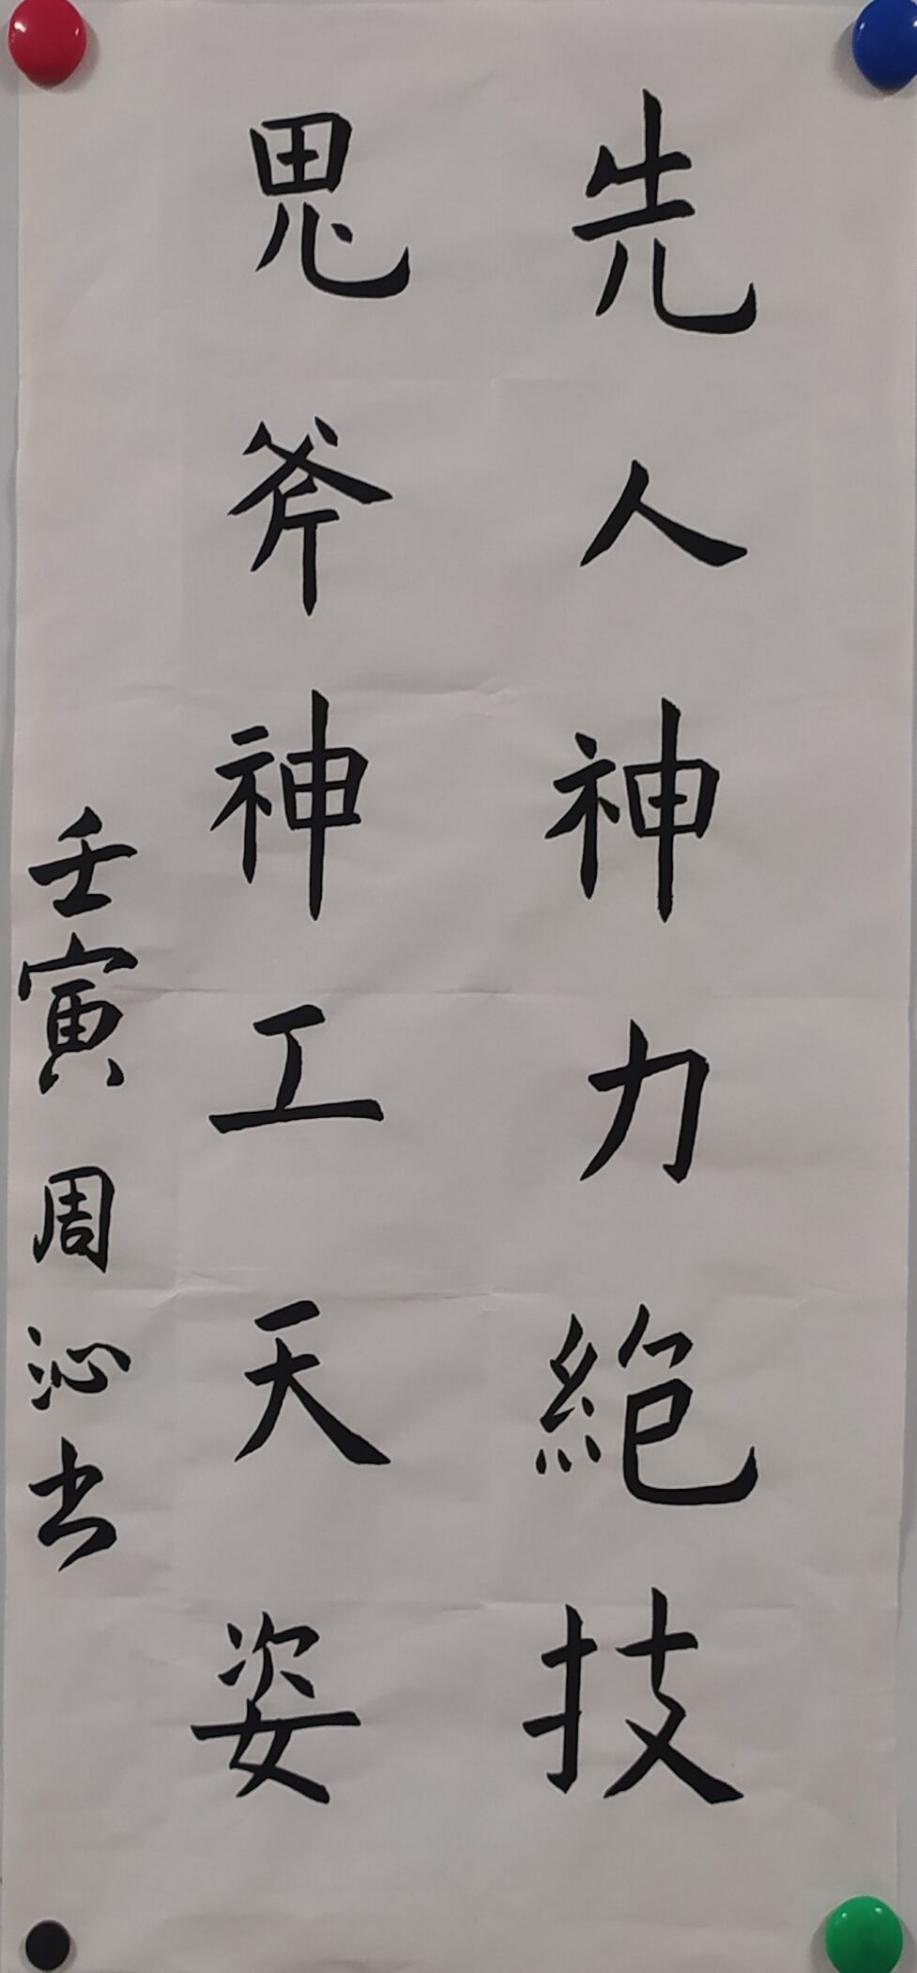 先人神力絶技
鬼斧神工天姿
壬寅 周沁书